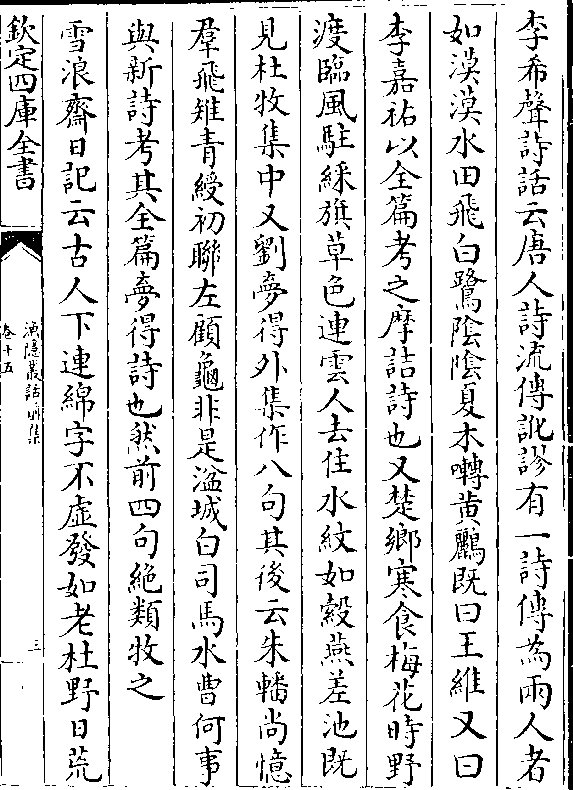 李希聲詩話云唐人詩流傳訛謬有一詩傳為兩人者
如漠漠水田飛白鷺陰陰夏木囀黄鸝既曰王維又曰
李嘉祐以全篇考之摩詰詩也又楚鄉寒食梅花時野
渡臨風駐綵旗草色連雲人去住水紋如縠燕差池既
見杜牧集中又劉夢得外集作八句其後云朱轓尚憶
羣飛雉青綬初聯左顧龜非是湓城白司馬水曹何事
與新詩考其全篇夢得詩也然前四句絶類牧之
雪浪齋日記云古人下連綿字不虚發如老杜野日荒
欽定四庫全書
漁隱叢話前集
卷十五
三